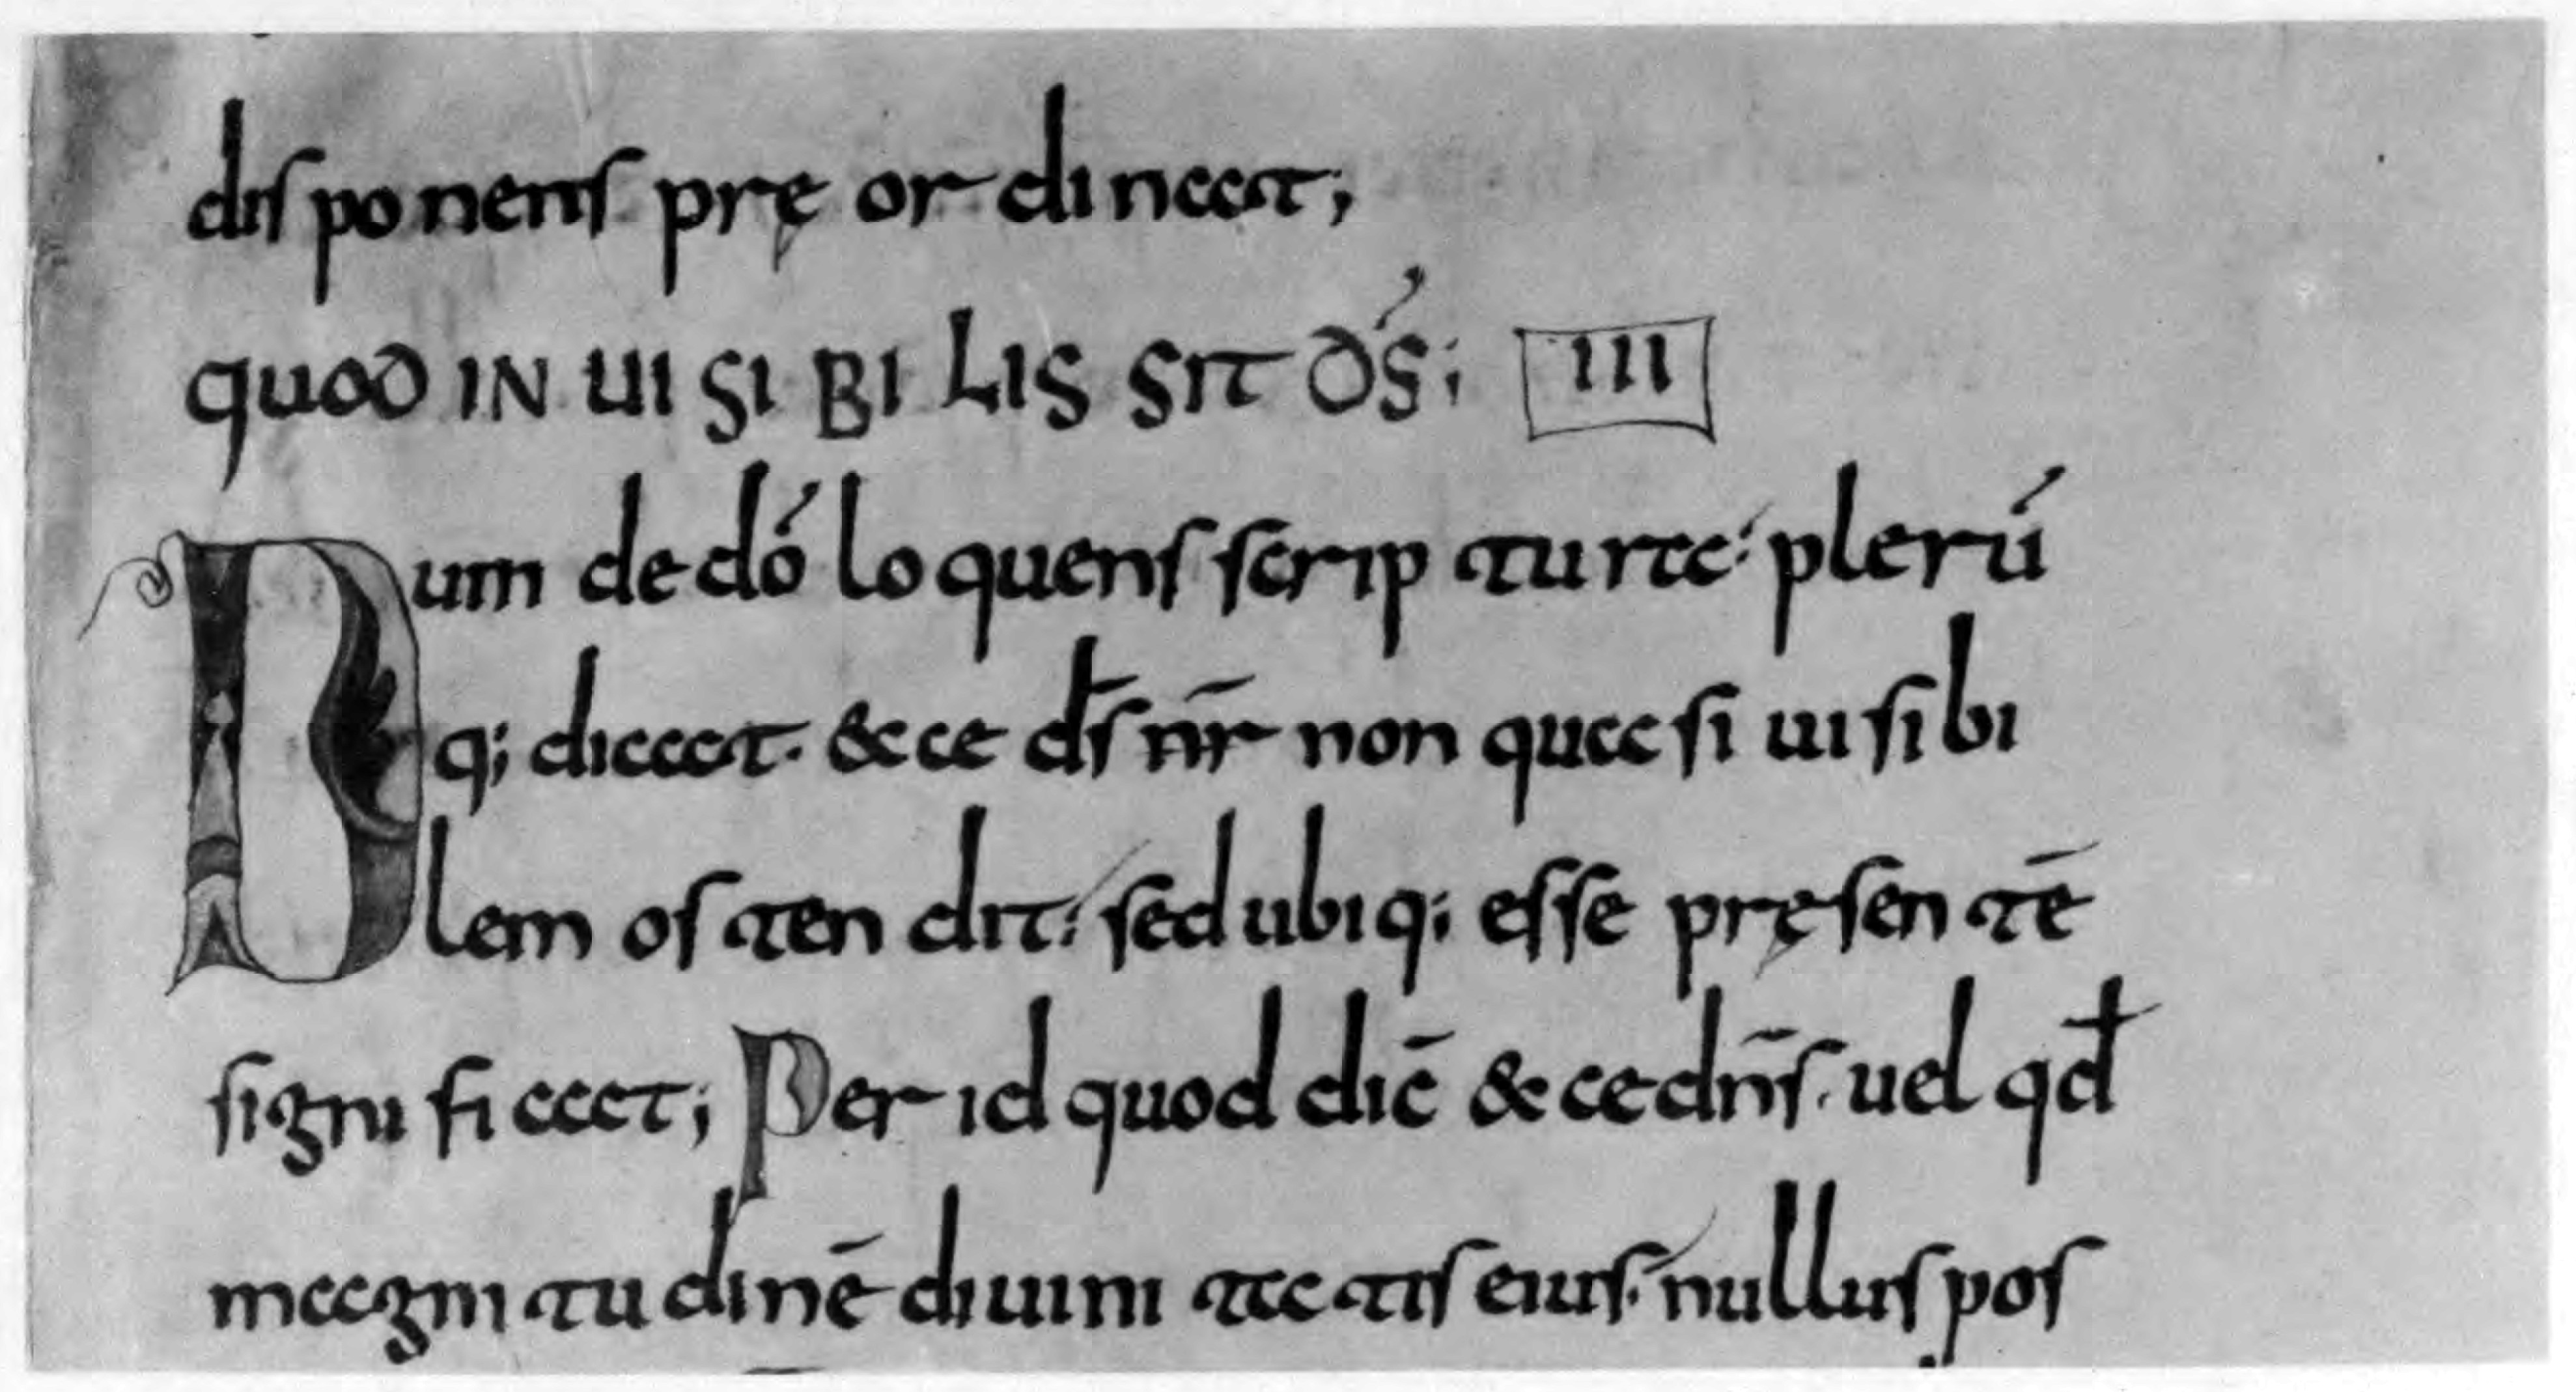 disponens pręordinat;
quod INUISIBILIS SIT DS̄; III
Dum de dō loquens scriptura plerū
q; dicat. &ce ds̄ nr̄ non quasi uisibi
lem ostendit. sed ubiq; esse pręsentē
significat; Per id quod dic̄ &ce dn̄s. uel qđ
magnitudinē diuinitatis eius. nullus pos